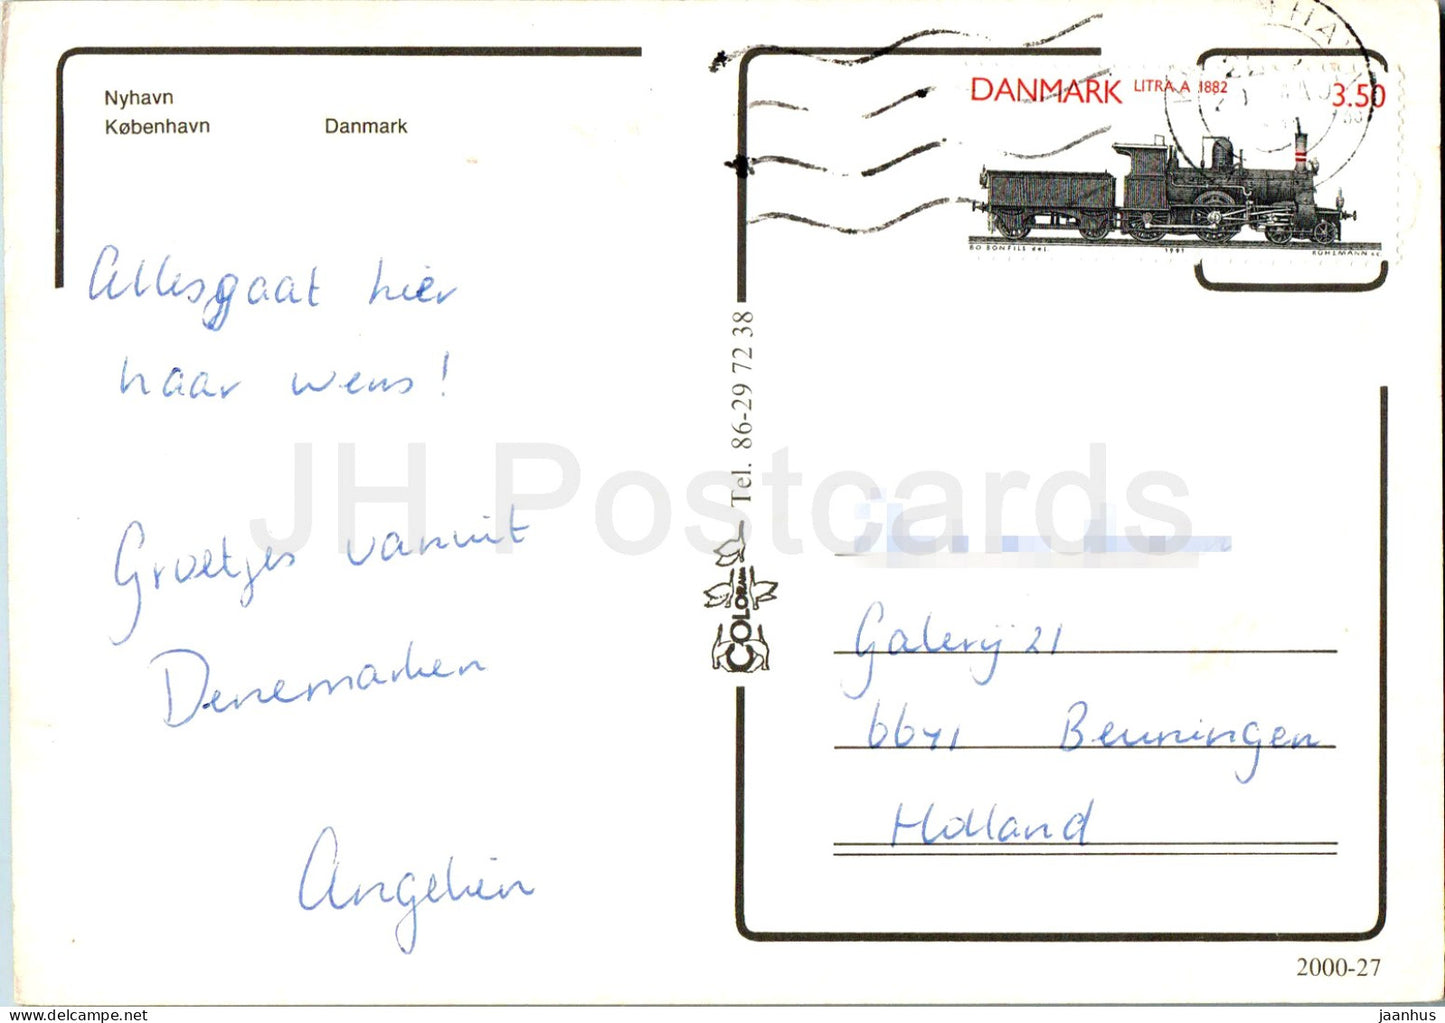 Nyhavn
København Danmark
Alles gaat hier
naar wens!
Groetjes vanuit
Denemarken
Angelien
Tel. 86-29 72 38
COLORAMA
DANMARK LITRA A 1882 3.50
BO BONFILS del. 1991 KÜHLMANN sc.
Galerij 21
6641 Beuningen
Holland
2000-27
JH Postcards
delcampe.net
jaanhus